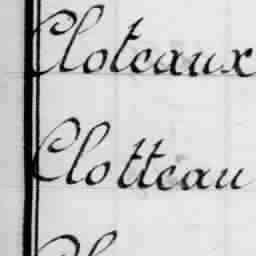 Cloteaux
Clotteau